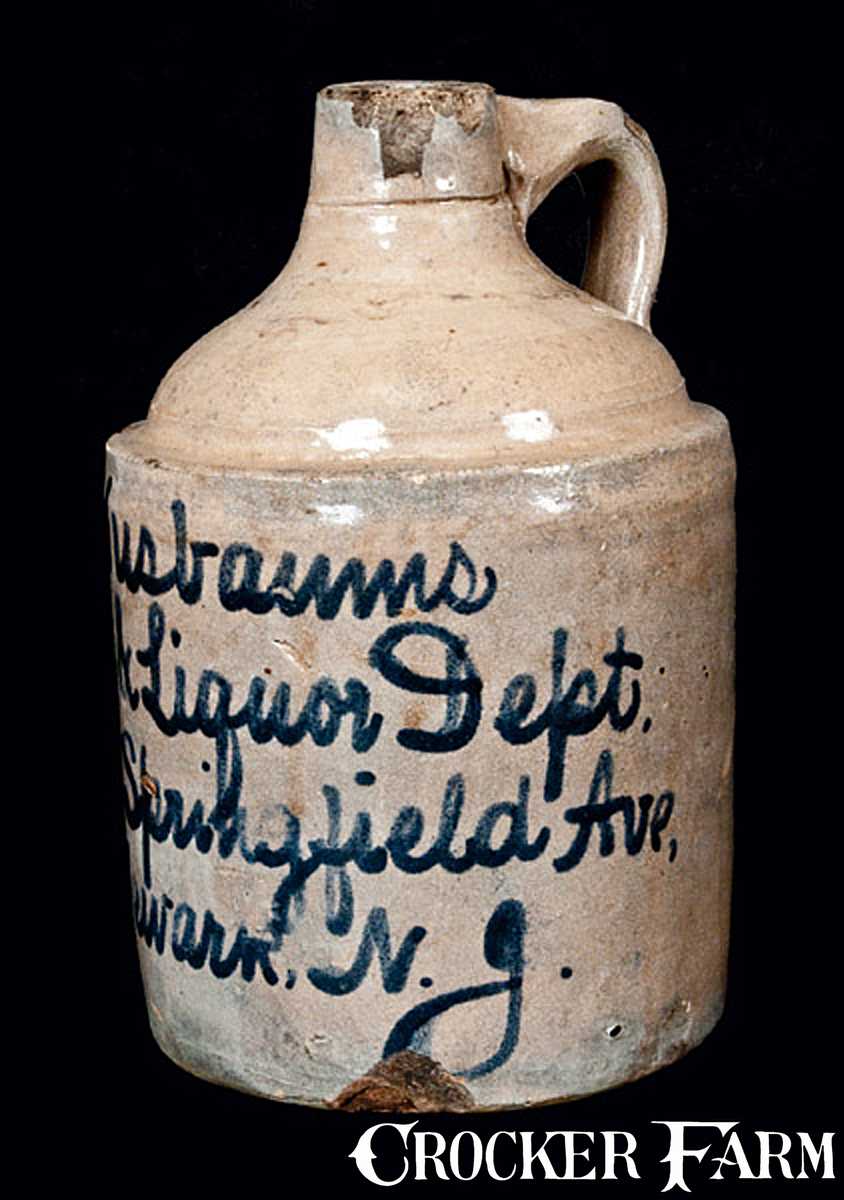 usbaums
& Liquor Dept.
Springfield Ave,
ewark, N. J.
CROCKER FARM